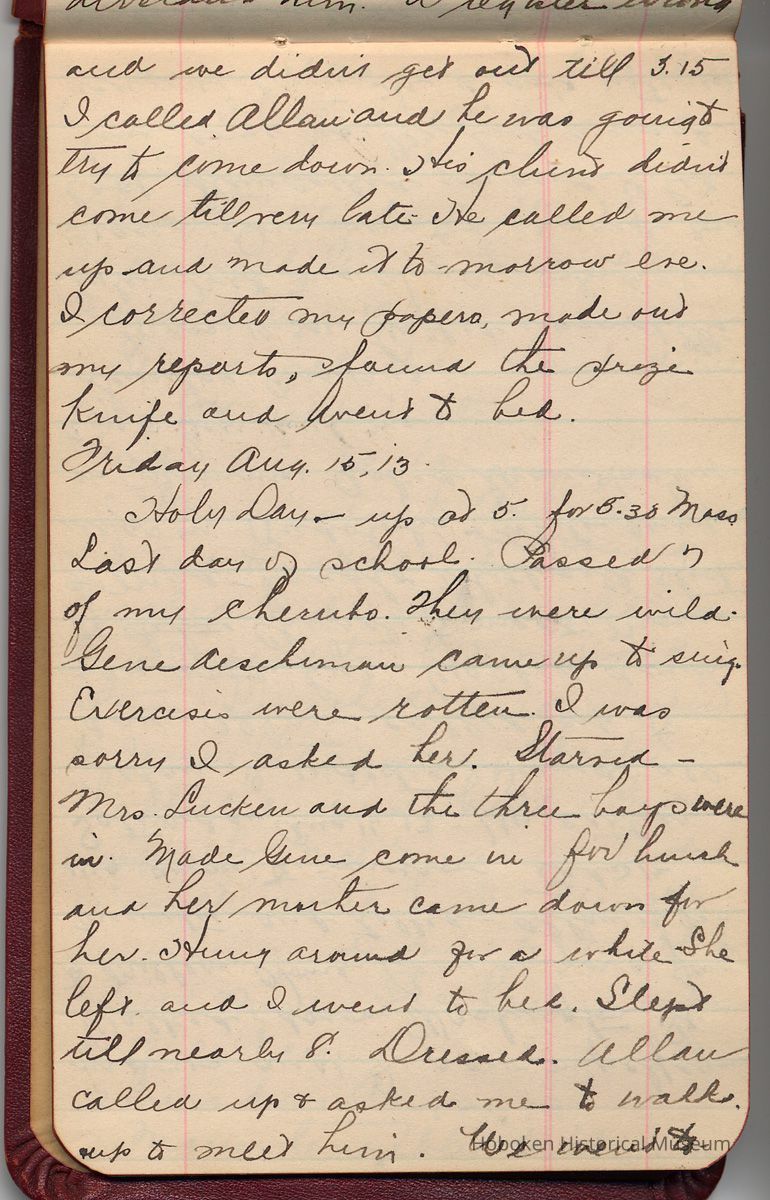 and we didn't get out till 3.15
I called Allan and he was going to
try to come down. His chum didn't
come till very late. He called me
up and made it to-morrow eve.
I corrected my papers, made out
my reports, found the prize
knife and went to bed.
Friday Aug. 15, 13.
Holy Day - up at 5. for 5.30 Mass
Last day of school. Passed 7
of my cherubs. They were wild.
Gene Aeschiman came up to sing.
Exercises were rotten. I was
sorry I asked her. Starved -
Mrs. Lucken and the three boys were
in. Made Gene come in for lunch
and her mother came down for
her. Hung around for a while She
left and I went to bed. Slept
till nearly 8. Dressed. Allan
called up & asked me to walk
up to meet him. We went to
Hoboken Historical Museum